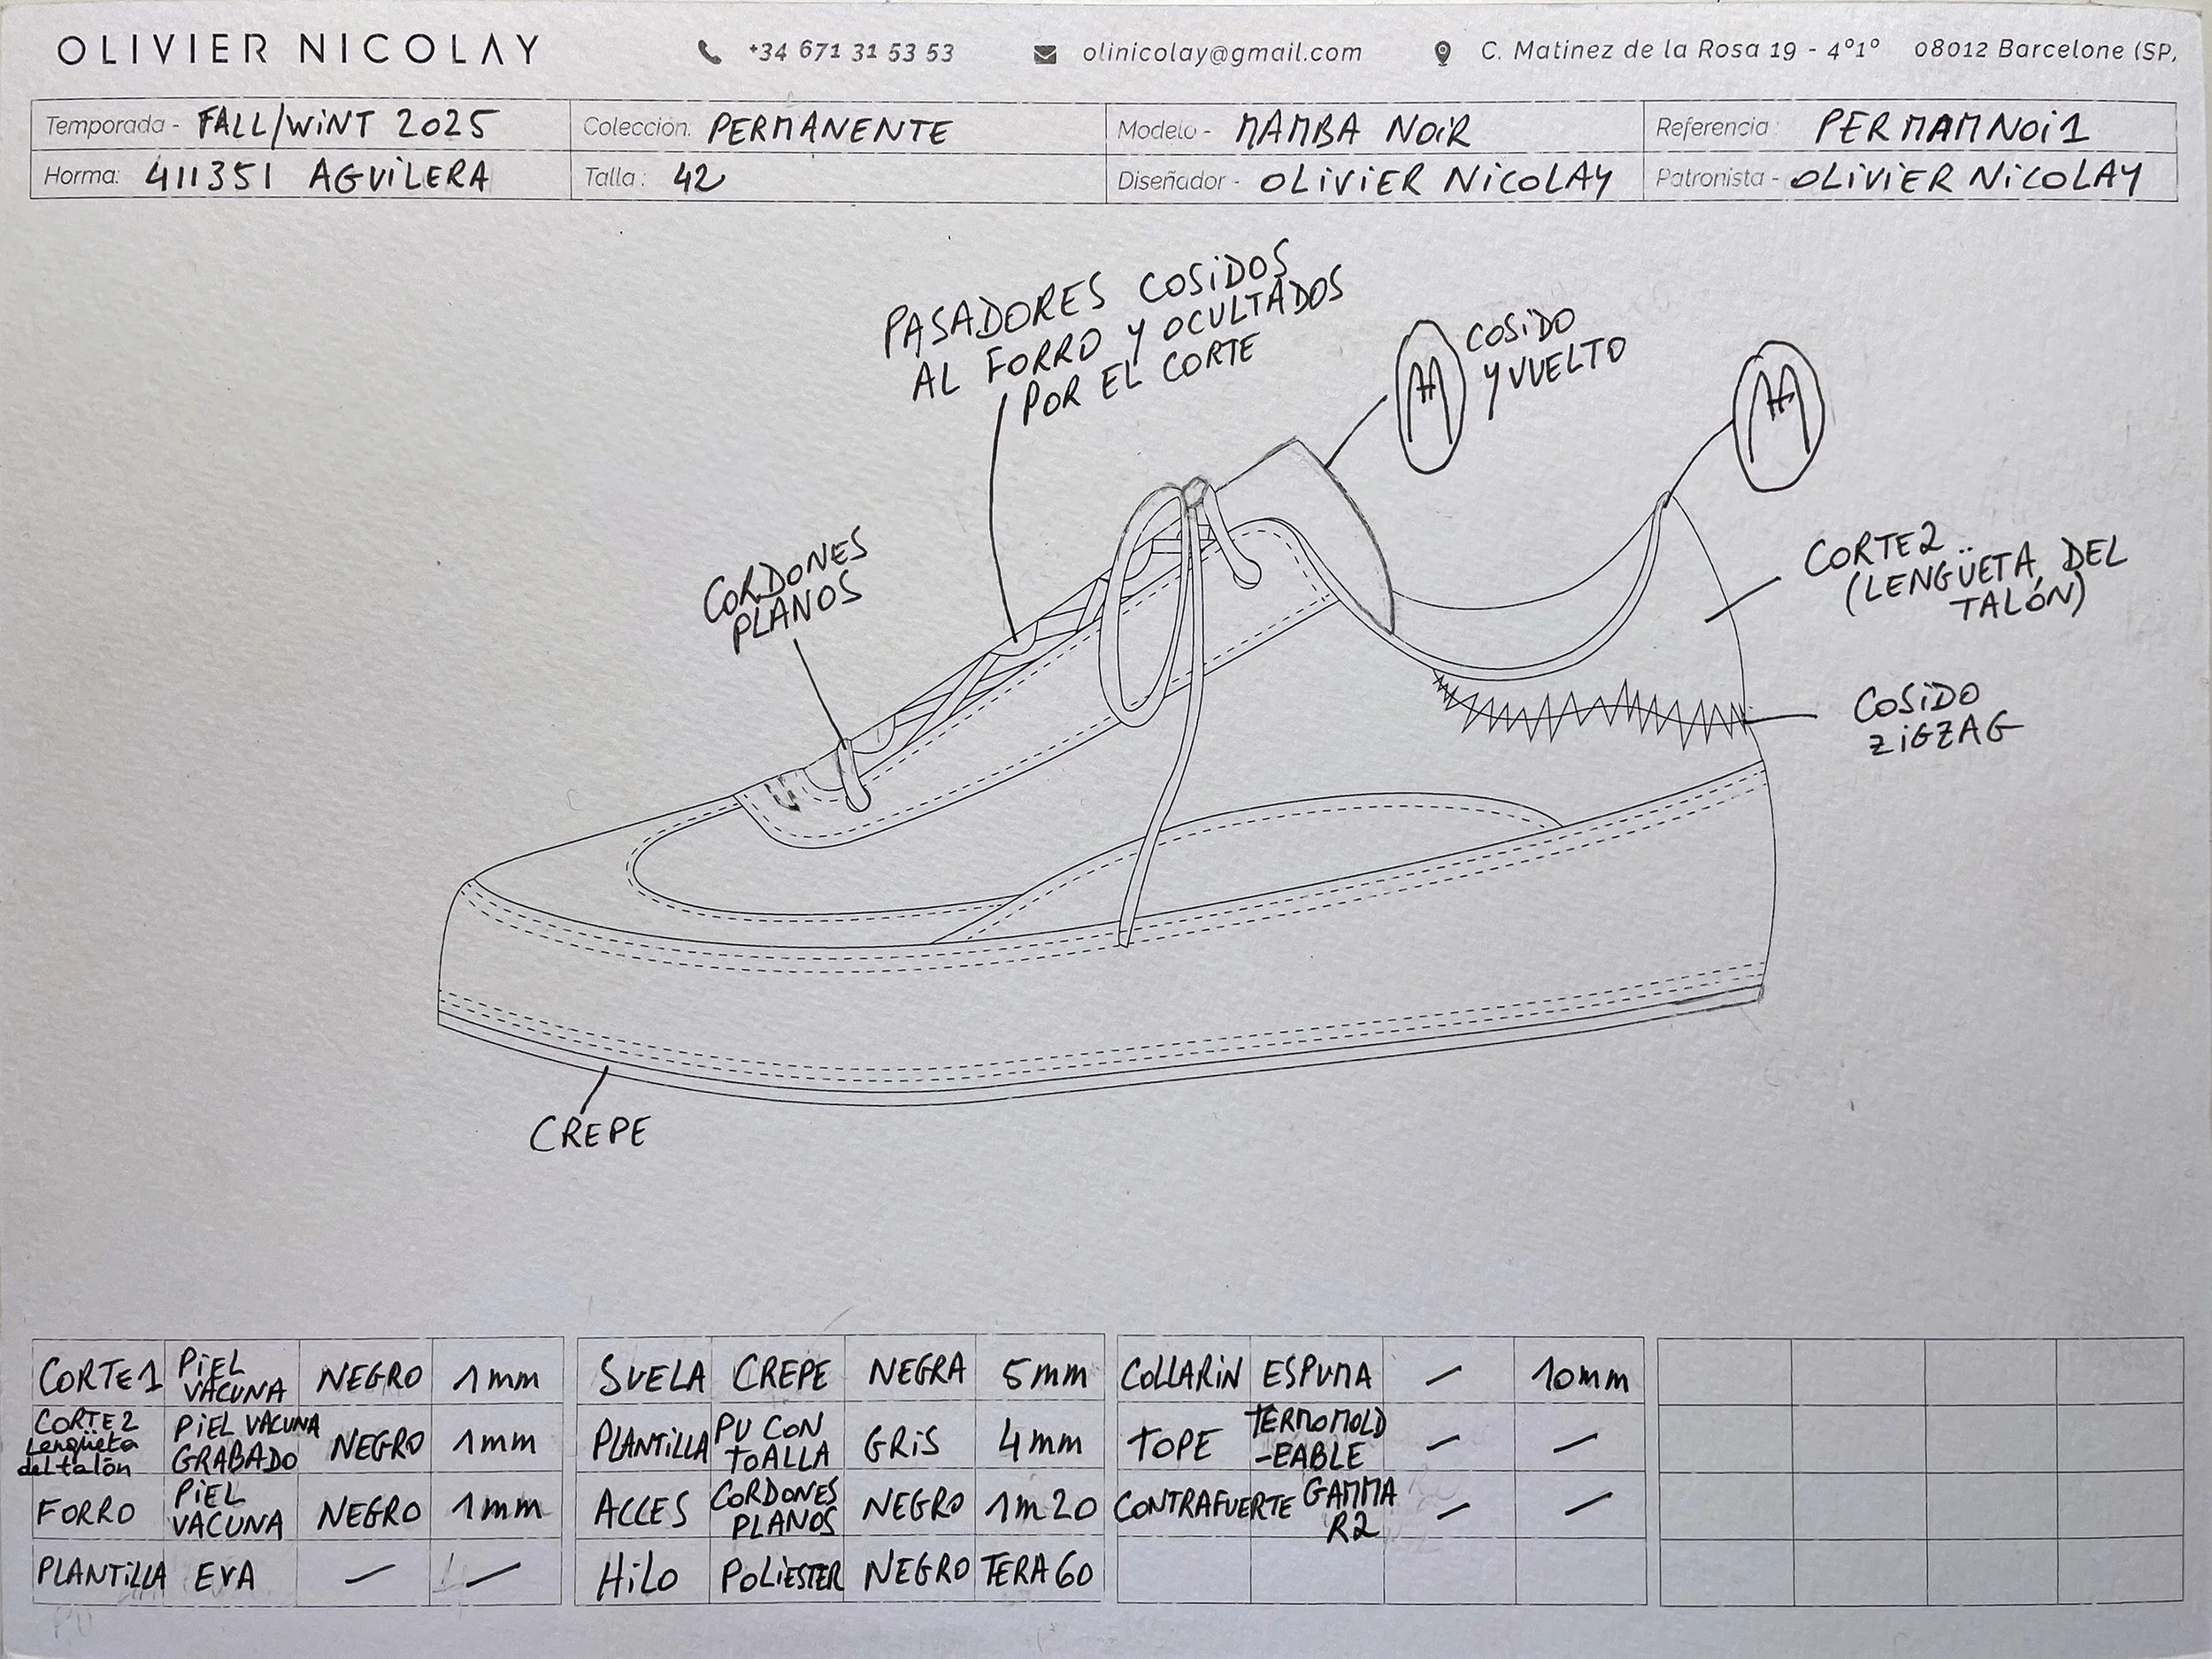 OLIVIER NICOLAY
+34 671 31 53 53
olinicolay@gmail.com
C. Matinez de la Rosa 19 - 4°1° 08012 Barcelone (SP,
Temporada - FALL/WINT 2025
Colección: PERMANENTE
Modelo - MAMBA NOIR
Referencia: PERMAMNOI1
Horma: 411351 AGUILERA
Talla: 42
Diseñador - OLIVIER NICOLAY
Patronista - OLIVIER NICOLAY
PASADORES COSIDOS
AL FORRO Y OCULTADOS
POR EL CORTE
COSIDO
Y VUELTO
CORDONES
PLANOS
CORTE2
(LENGÜETA DEL
TALÓN)
COSIDO
ZIGZAG
CREPE
CORTE1 PIEL VACUNA NEGRO 1mm
CORTE2 Lengüeta del talón PIEL VACUNA GRABADO NEGRO 1mm
FORRO PIEL VACUNA NEGRO 1mm
PLANTILLA EVA - -
SUELA CREPE NEGRA 5mm
PLANTILLA PU CON TOALLA GRIS 4mm
ACCES CORDONES PLANOS NEGRO 1m20
HILO POLIESTER NEGRO TERA 60
COLLARIN ESPUMA - 10mm
TOPE TERMOMOLD-EABLE - -
CONTRAFUERTE GAMMA R2 - -